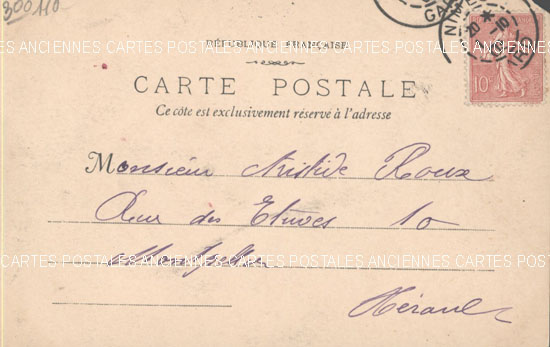 300110
RÉPUBLIQUE FRANÇAISE
ANCIENNES CARTES POSTALES ANCIENNES CARTES POSTALES
CARTE POSTALE
10
Ce côté est exclusivement réservé à l'adresse
Monsieur Aristide Roux
Rue des Etuves 10
Montpellier
ANCIENNES CARTES POSTALES ANCIENNES CARTES POSTALES
Hérault